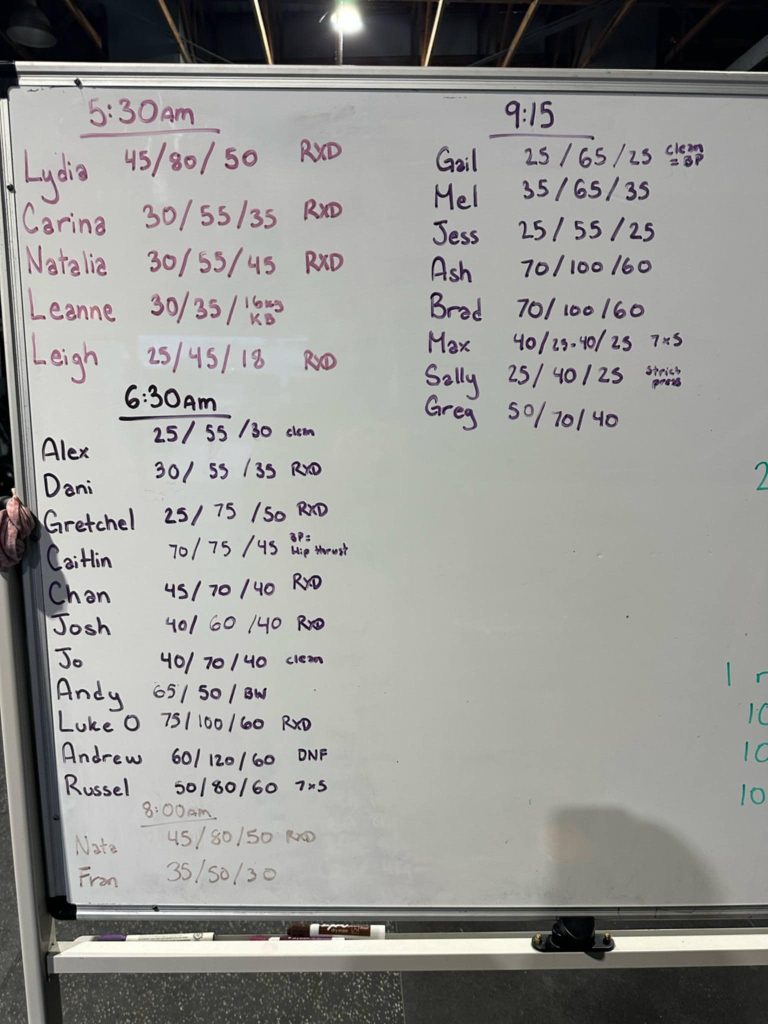 5:30am
Lydia 45/80/50 RXD
Carina 30/55/35 RXD
Natalia 30/55/45 RXD
Leanne 30/35/16kg KB
Leigh 25/45/18 RXD
6:30am
Alex 25/55/30 clean
Dani 30/55/35 RXD
Gretchel 25/75/50 RXD
Caitlin 70/75/45 BP= Hip thrust
Chan 45/70/40 RXD
Josh 40/60/40 RXD
Jo 40/70/40 clean
Andy 65/50/BW
Luke O 75/100/60 RXD
Andrew 60/120/60 DNF
Russel 50/80/60 7x5
8:00am
Nata 45/80/50 RXD
Fran 35/50/30
9:15
Gail 25/65/25 clean = BP
Mel 35/65/35
Jess 25/55/25
Ash 70/100/60
Brad 70/100/60
Max 40/25-40/25 7x5
Sally 25/40/25 press
Greg 50/70/40
2
1
10
10
10